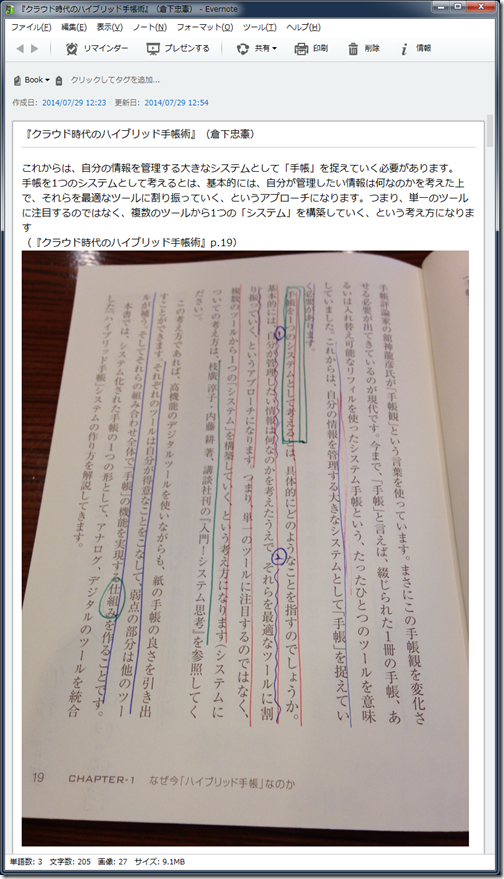 『クラウド時代のハイブリッド手帳術』（倉下忠憲） - Evernote
ファイル(F) 編集(E) 表示(V) ノート(N) フォーマット(O) ツール(T) ヘルプ(H)
リマインダー プレゼンする 共有 印刷 削除 情報
Book クリックしてタグを追加...
作成日: 2014/07/29 12:23 更新日: 2014/07/29 12:54
『クラウド時代のハイブリッド手帳術』（倉下忠憲）
これからは、自分の情報を管理する大きなシステムとして「手帳」を捉えていく必要があります。
手帳を1つのシステムとして考えるとは、基本的には、自分が管理したい情報は何なのかを考えた上
で、それらを最適なツールに割り振っていく、というアプローチになります。つまり、単一のツール
に注目するのではなく、複数のツールから1つの「システム」を構築していく、という考え方になりま
す
（『クラウド時代のハイブリッド手帳術』p.19）
手帳評論家の舘神龍彦氏が「手帳観」という言葉を使っています。まさにこの手帳観を変化さ
せる必要が出てきているのが現代です。今まで、「手帳」と言えば、綴じられた1冊の手帳、あ
るいは入れ替え可能なリフィルを使ったシステム手帳という、たったひとつのツールを意味
していました。これからは、自分の情報を管理する大きなシステムとして「手帳」を捉えてい
く必要があります。
手帳を1つのシステムとして考えるとは、具体的にどのようなことを指すのでしょうか。
基本的には、自分が管理したい情報は何なのかを考えたうえで、それらを最適なツールに割
り振っていく、というアプローチになります。つまり、単一のツールに注目するのではなく、
複数のツールから1つの「システム」を構築していく、という考え方になります（システムに
ついての考え方は、枝廣淳子・内藤耕著、講談社刊の『入門！システム思考』を参照してく
ださい）。
この考え方であれば、高機能のデジタルツールを使いながらも、紙の手帳の良さを引き出
すことができます。それぞれのツールは自分が得意なことをこなして、弱点の部分は他のツー
ルが補う。そしてそれらの組み合わせ全体で「手帳」の機能を実現する仕組みを作ることです。
本書では、システム化された手帳の1つの形として、アナログ、デジタルのツールを統合
した「ハイブリッド手帳」システムの作り方を解説してきます。
19 CHAPTER-1 なぜ今「ハイブリッド手帳」なのか
単語数: 3 文字数: 205 画像: 27 サイズ: 9.1MB